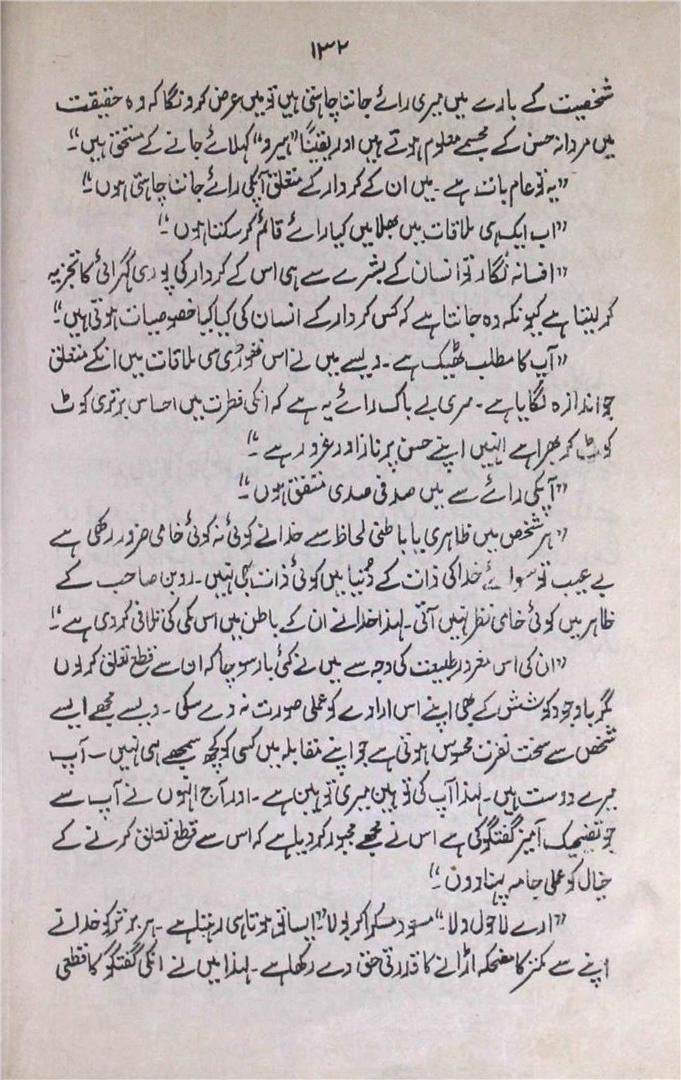 ۱۳۲
شخصیت کے بارے میں میری رائے جاننا چاہتی ہیں تو میں عرض کرونگا کہ وہ حقیقت
میں مردانہ حسن کے مجسمے معلوم ہوتے ہیں اور یقیناً "ہیرو" کہلائے جانے کے مستحق ہیں"۔
"یہ تو عام بات ہے۔ میں ان کے کردار کے متعلق آپکی رائے جاننا چاہتی ہوں"۔
"اب ایک ہی ملاقات میں بھلا میں کیا رائے قائم کر سکتا ہوں"۔
"افسانہ نگار تو انسان کے بشرے سے ہی اس کے کردار کی پوری گہرائی کا تجزیہ
کر لیتا ہے کیونکہ وہ جانتا ہے کہ کس کردار کے انسان کی کیا کیا خصوصیات ہوتی ہیں"۔
"آپ کا مطلب ٹھیک ہے۔ ویسے میں نے اس تھوڑی سی ملاقات میں انکے متعلق
جو اندازہ لگایا ہے۔ مری بے باک رائے یہ ہے کہ انکی فطرت میں احساس برتری کوٹ
کوٹ کر بھرا ہے انہیں اپنے حسن پر ناز اور غرور ہے"۔
"آپکی رائے سے میں صد فی صدی متفق ہوں"۔
"ہر شخص میں ظاہری یا باطنی لحاظ سے خدا نے کوئی نہ کوئی خامی ضرور رکھی ہے
بے عیب تو سوائے خدا کی ذات کے دنیا میں کوئی ذات بھی نہیں۔ روبن صاحب کے
ظاہر میں کوئی خامی نظر نہیں آتی۔ لہذا خدا نے ان کے باطن میں اس کمی کی تلافی کر دی ہے"۔
"ان کی اس مغرور طبیعت کی وجہ سے میں نے کئی بار سوچا کہ ان سے قطع تعلق کر لوں
مگر باوجود کوشش کے بھی اپنے اس ارادے کو عملی صورت نہ دے سکی۔ ویسے مجھے ایسے
شخص سے سخت نفرت محسوس ہوتی ہے جو اپنے مقابلہ میں کسی کو کچھ سمجھے ہی نہیں۔ آپ
میرے دوست ہیں۔ لہذا آپ کی توہین میری توہین ہے۔ اور آج انہوں نے آپ سے
جو تضحیک آمیز گفتگو کی ہے اس نے مجھے مجبور کر دیا ہے کہ اس سے قطع تعلق کرنے کے
خیال کو عملی جامہ پہنا دوں"۔
"ارے لاحول ولا"۔ مسعود مسکرا کر بولا "ایسا تو ہوتا ہی رہتا ہے۔ ہر برتر کو خدا نے
اپنے سے کمتر کا مضحکہ اڑانے کا قدرتی حق دے رکھا ہے۔ لہذا میں نے انکی گفتگو کا قطعی